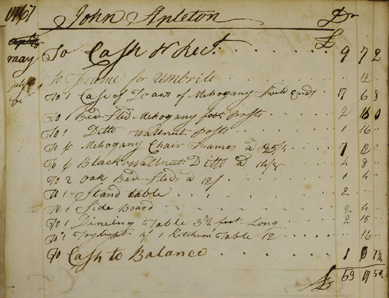 1767 John Apleton Dr
£
may To Cash pr Rect. 9 7 2
July To Frame for Umbrilo 12
To 1 Case of Draws of Mahogany Sweld ends 17 6
To 1 Bed Sted Mahogany foot Posts 2
To 1 Ditto Walnut Posts 1 16
To 6 Mahogany Chair Frames a 25/4 7 12
To 6 Black Wallnut Ditto a 14/8 4 8
To 2 Oak Bed Sted a 12/ 1 4
To 1 Stand table
To 1 Side Board 2
To 1 Dineing Table 3½ feet Long 2 15
To 1 Kitchin Table 12 16
To Cash to Balance 1
£ 53